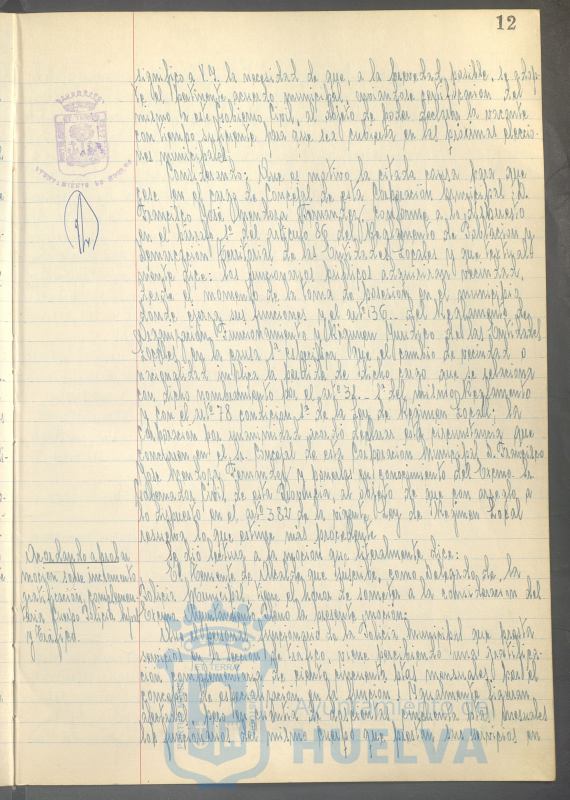 12
significo a V.I. la necesidad de que, a la brevedad posible, se adop-
te el pertinente acuerdo municipal, enviándose certificación del
mismo a este Gobierno Civil, al objeto de poder declarar la vacante
con tiempo suficiente para que sea cubierta en las próximas eleccio-
nes municipales.
Considerando: Que es motivo la citada causa para que
cese en el cargo de Concejal de esta Corporación Municipal, D.
Francisco José Fernández, conforme a lo dispuesto
en el párrafo 1º del artículo 86 del Reglamento de Población y
Demarcación Territorial de las Entidades Locales y que textual-
mente dice: los funcionarios públicos adquirirán vecindad,
desde el momento de la toma de posesión en el municipio
donde ejerza sus funciones y el artº 136 del Reglamento de
Organización, Funcionamiento y Régimen Jurídico de las Entidades
Locales, en la causa especifica que el cambio de vecindad o
nacionalidad implica la pérdida de dicho cargo que se relaciona
con dicho nombramiento por el artº 32 1º del mismo Reglamento
y con el artº 78 condición 1ª de la Ley de Régimen Local; la
Corporación por unanimidad declarar esta circunstancia que
concurren en el Sr. Concejal de esta Corporación Municipal D. Francisco
José Fernández y ponerlo en conocimiento del Excmo. Sr.
Gobernador Civil de esta Provincia, al objeto de que con arreglo a
lo dispuesto en el artº 382 de la vigente Ley de Régimen Local
resuelva lo que estime más procedente.
Acordando aprobar
moción sobre incremento
gratificación complemen-
taria Cuerpo Policía Mpal
y Tráfico.
Se dió lectura a la moción que literalmente dice:
El Teniente de Alcalde que suscribe, como Delegado de la
Policía Municipal, tiene el honor de someter a la consideración del
Excmo. Ayuntamiento Pleno la presente moción:
funcionario de la Policía Municipal que presta
servicio en la sección de tráfico, viene percibiendo una gratifica-
ción complementaria de ciento cincuenta ptas mensuales por el
concepto de especialización en la función. Igualmente figuran
pero en cuantía de doscientas cincuenta ptas mensuales
los funcionarios del mismo cuerpo que prestan sus servicios en
Ayuntamiento de
HUELVA